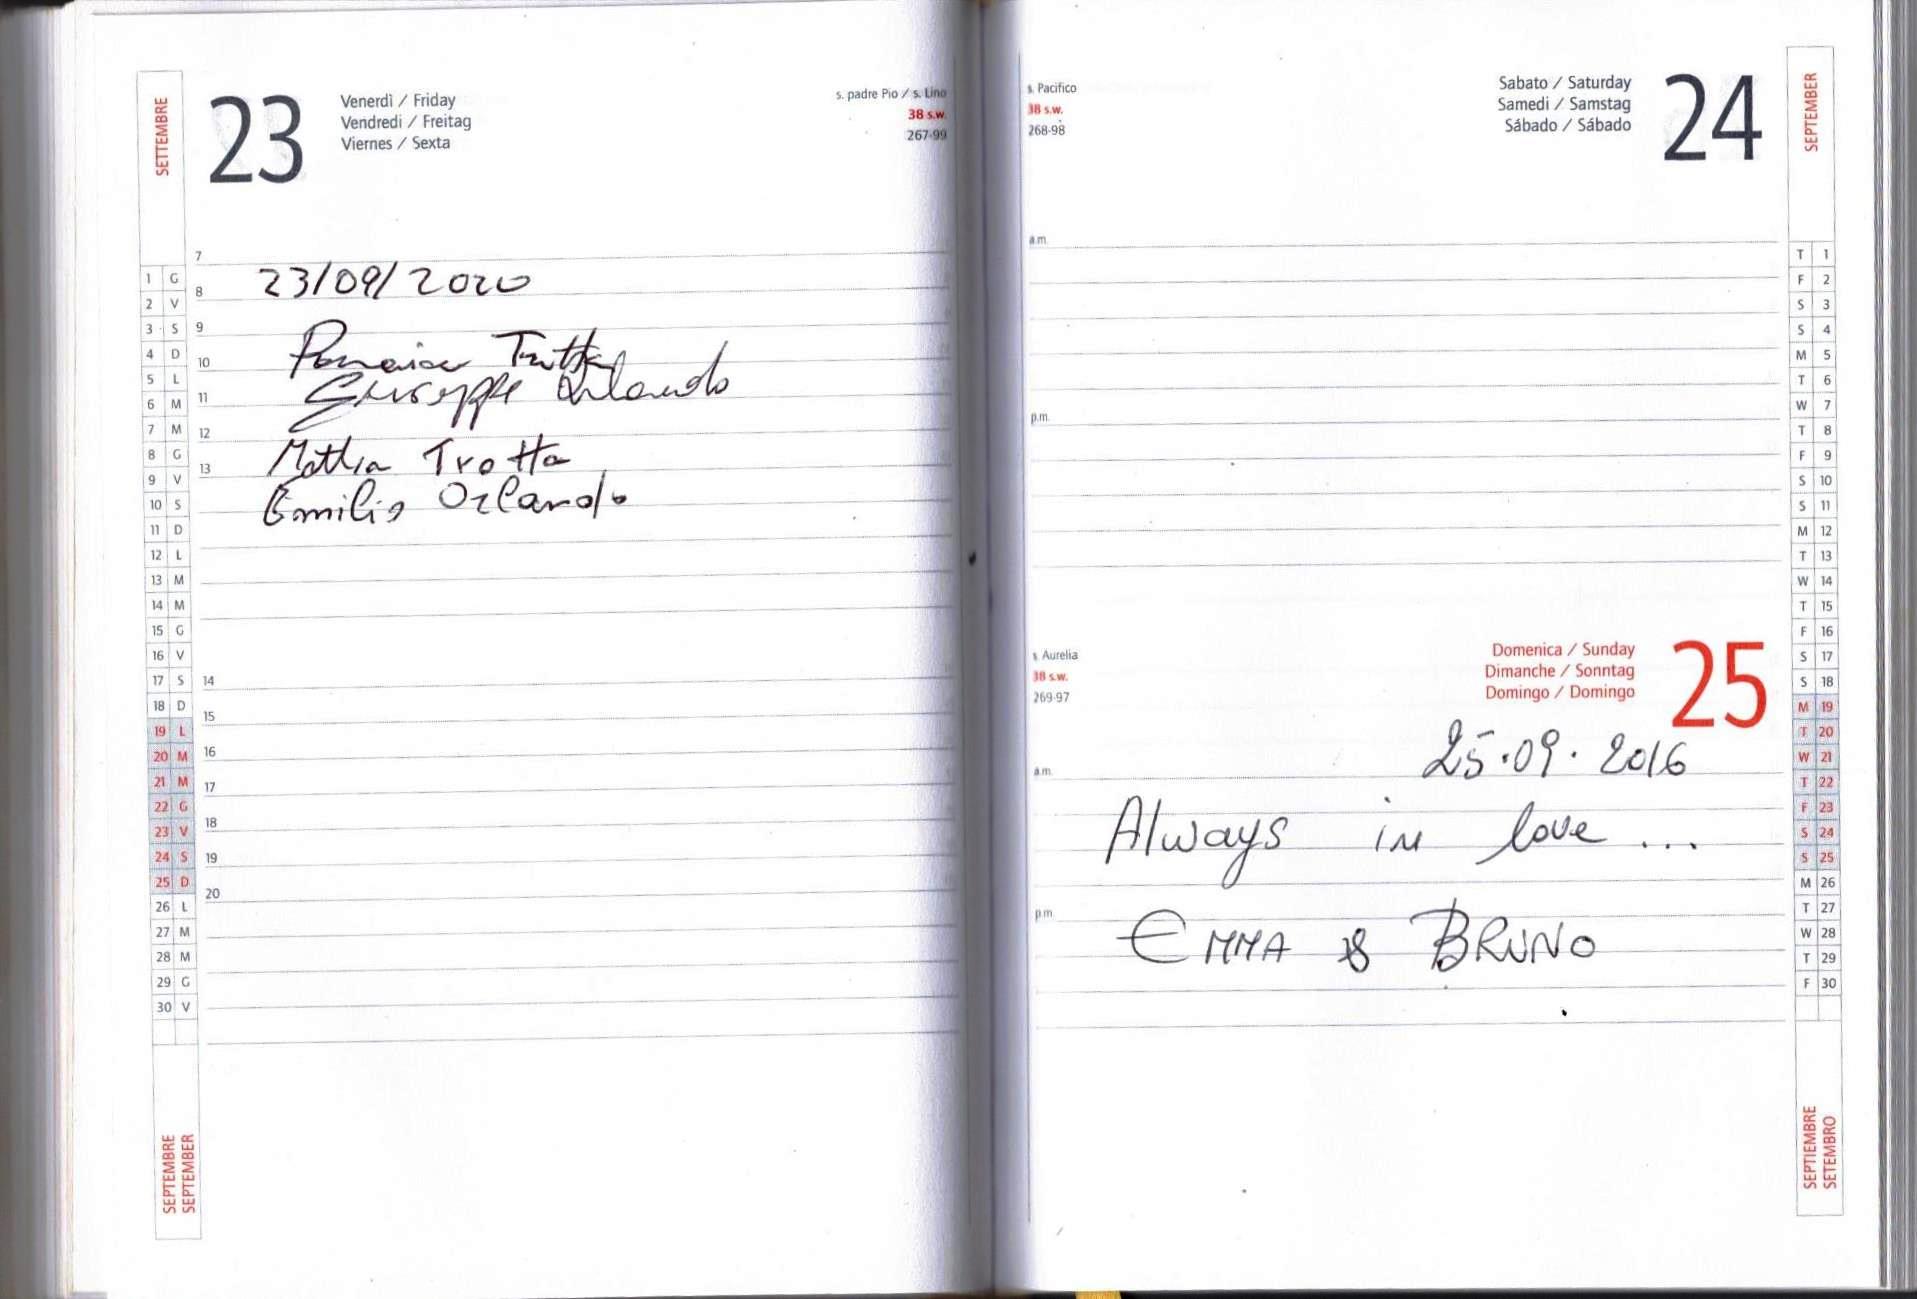 SETTEMBRE
23
Venerdì / Friday
Vendredi / Freitag
Viernes / Sexta
s. padre Pio / s. Lino
38 s.w.
267-99
7
8 23/09/2020
9
10 Trotta
11 Giuseppe Orlando
12
13 Mattia Trotta
Emilio Orlando
14
15
16
17
18
19
20
1 G
2 V
3 S
4 D
5 L
6 M
7 M
8 G
9 V
10 S
11 D
12 L
13 M
14 M
15 G
16 V
17 S
18 D
19 L
20 M
21 M
22 G
23 V
24 S
25 D
26 L
27 M
28 M
29 G
30 V
SEPTEMBRE
SEPTEMBER
s. Pacifico
38 s.w.
268-98
Sabato / Saturday
Samedi / Samstag
Sábado / Sábado
24
SEPTEMBER
a.m.
p.m.
s. Aurelia
38 s.w.
269-97
Domenica / Sunday
Dimanche / Sonntag
Domingo / Domingo
25
25.09.2016
a.m.
Always in love ...
p.m.
EMMA & BRUNO
T 1
F 2
S 3
S 4
M 5
T 6
W 7
T 8
F 9
S 10
S 11
M 12
T 13
W 14
T 15
F 16
S 17
S 18
M 19
T 20
W 21
T 22
F 23
S 24
S 25
M 26
T 27
W 28
T 29
F 30
SEPTIEMBRE
SETEMBRO